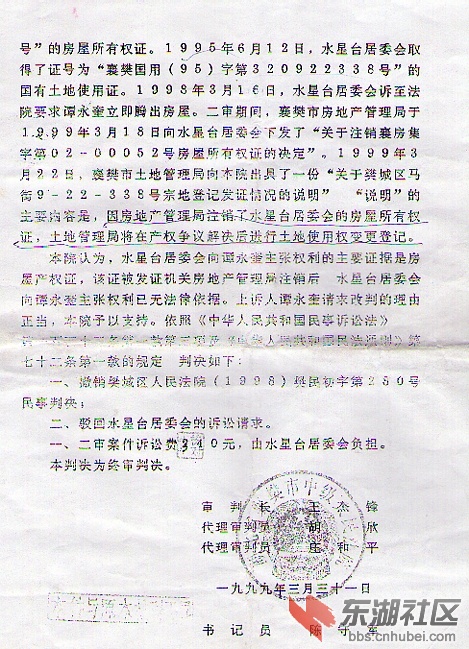 号”的房屋所有权证。1995年6月12日，水星台居委会取
得了证号为“襄樊国用(95)字第320922338号”的
国有土地使用证。1998年3月16日，水星台居委会诉至法
院要求谭永奎立即腾出房屋。二审期间，襄樊市房地产管理局于
1999年3月18日向水星台居委会下发了“关于注销襄房集
字第02-00052号房屋所有权证的决定”。1999年3
月22日，襄樊市土地管理局向本院出具了一份“关于樊城区马
街9-22-338号宗地登记发证情况的说明”　“说明”的
主要内容是，因房地产管理局注销了水星台居委会的房屋所有权
证，土地管理局将在产权争议解决后进行土地使用权变更登记。
本院认为，水星台居委会向谭永奎主张权利的主要证据是房
屋产权证，该证被发证机关房地产管理局注销后　水星台居委会
向谭永奎主张权利已无法律依据。上诉人谭永奎请求改判的理由
正当，本院予以支持。依照《中华人民共和国民事诉讼法》
第 中华人民共和国民法通则》第
七十二条第一款的规定　判决如下：
一、撤销樊城区人民法院(1998)樊民初字第250号
民事判决；
二、驳回水星台居委会的诉讼请求。
一、二审案件诉讼费340元，由水星台居委会负担。
本判决为终审判决。
审　判　长　王　杰　锋
代理审判员　胡　　欣
代理审判员　庄　和　平
一九九九年三月三十一日
书　记　员　陈　守　军
东湖社区
bbs.cnhubei.com